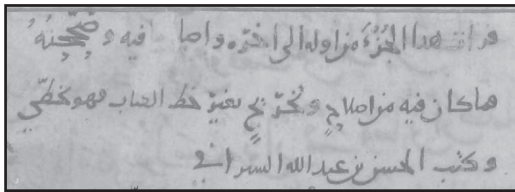 قرأت هذا الجزء من أوله إلى آخره وأما فيه وصححته
فما كان فيه من إصلاح وتخريج بغير خط الكتاب فهو بخطي
وكتب الحسن بن عبد الله السيرافي